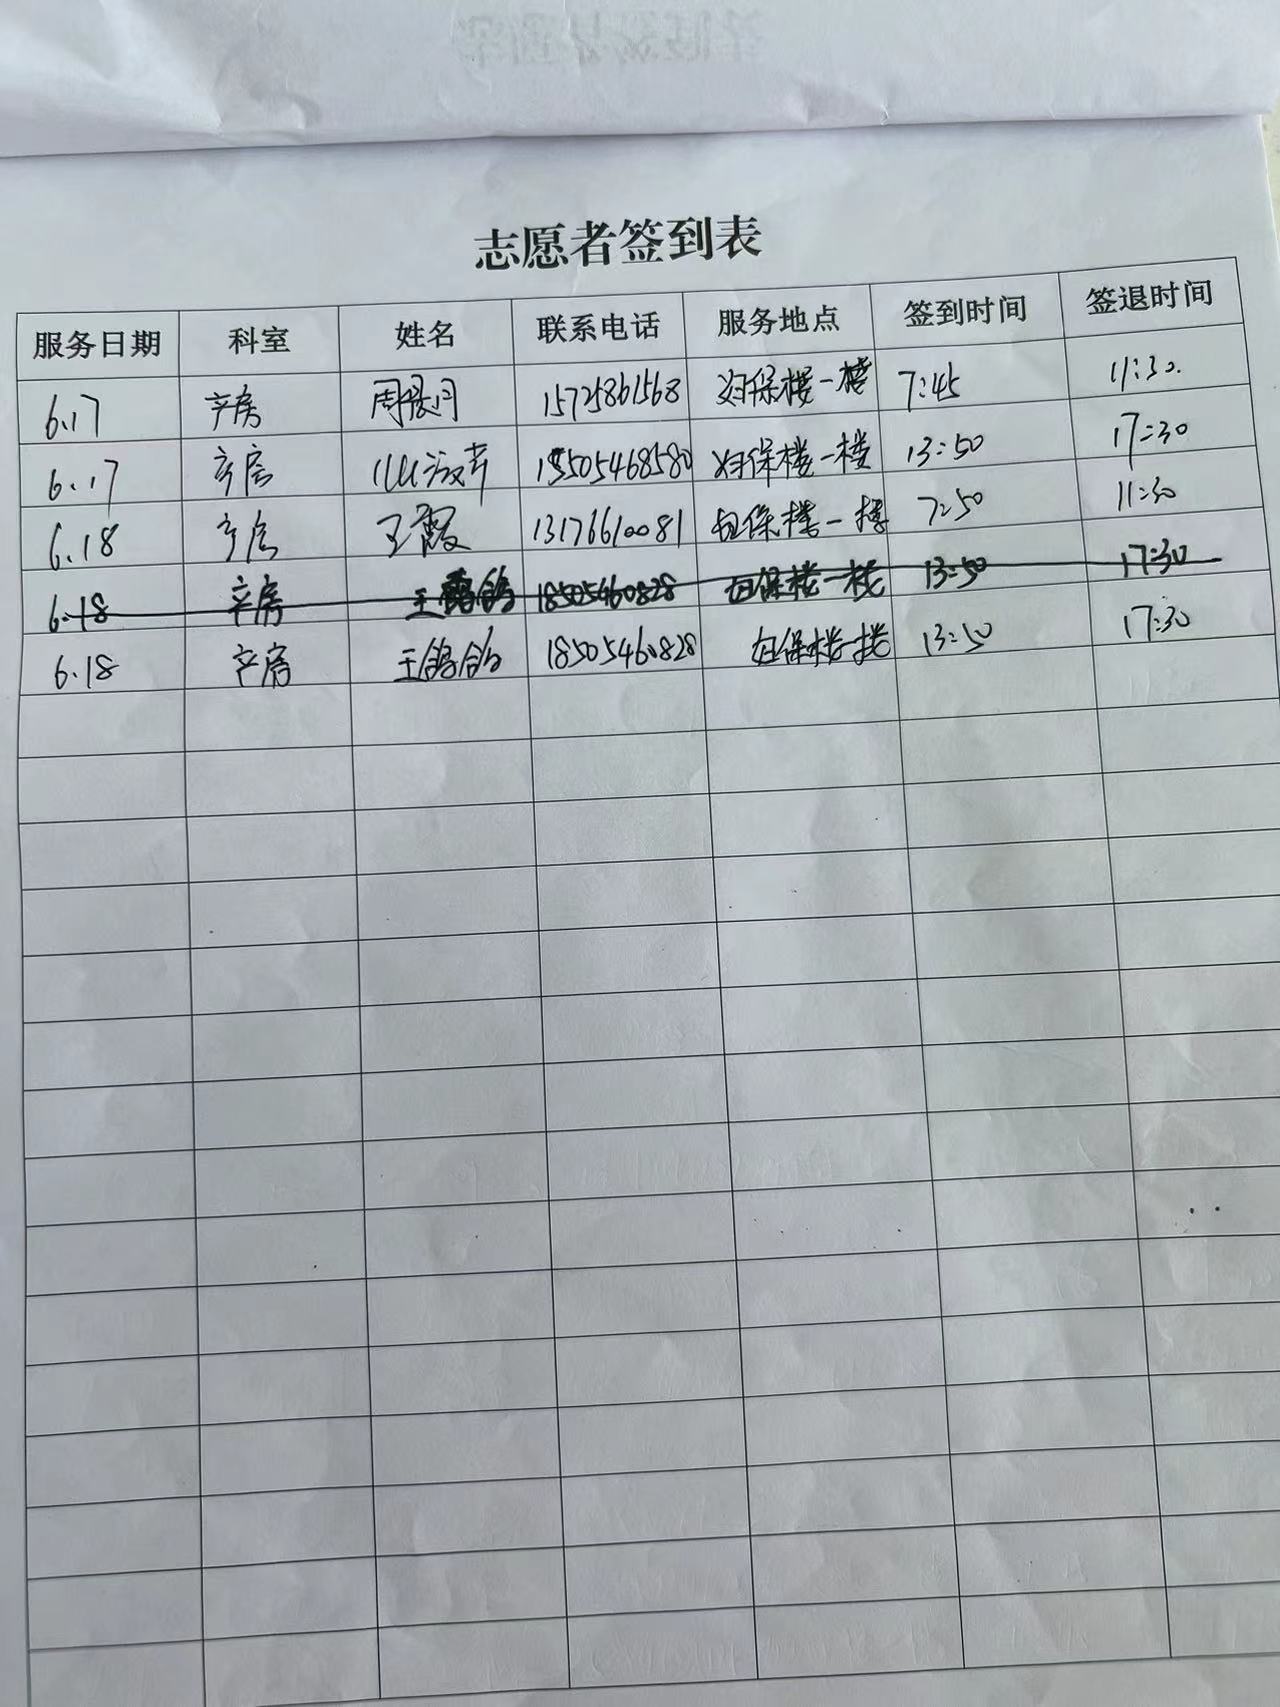 志愿者签到表
服务日期 科室 姓名 联系电话 服务地点 签到时间 签退时间
6.17 产房 周晨月 15725861568 妇保楼一楼 7:45 11:30.
6.17 产房 18505468580 妇保楼一楼 13:50 17:30
6.18 产房 王霞 13176610081 妇保楼一楼 7:50 11:30
6.18 产房 王 鸽 18505460828 妇保楼一楼 13:50 17:30
6.18 产房 王鸽鸽 18505460828 妇保楼一楼 13:50 17:30